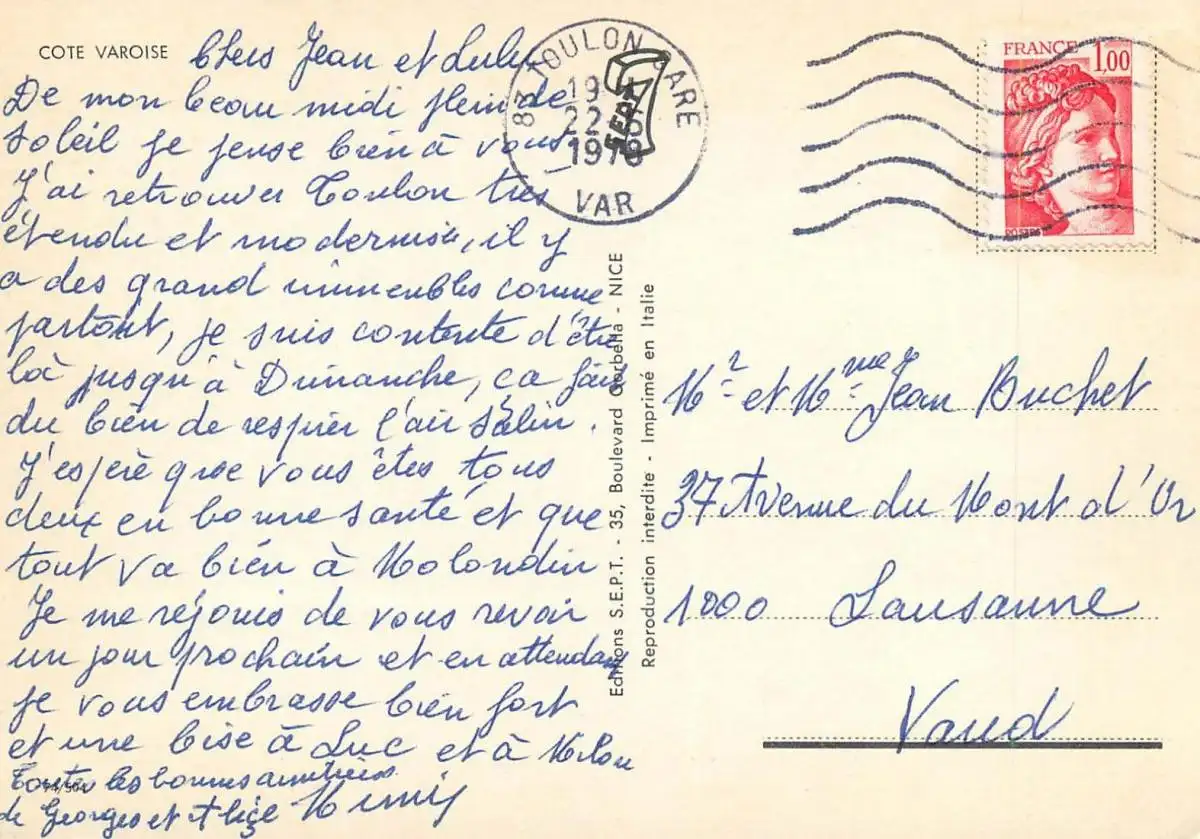 COTE VAROISE
Chers Jean et Lulu
De mon beau midi plein de
soleil je pense bien à vous
J'ai retrouver Toulon très
étendu et modernisé, il y
a des grand immeubles comme
partout, je suis contente d'être
là jusqu'à Dimanche, ça fait
du bien de respirer l'air salin.
J'espère que vous êtes tous
deux en bonne santé et que
tout va bien à Molondin
Je me réjouis de vous revoir
un jour prochain et en attendant
je vous embrasse bien fort
et une bise à Luc et à Milou
Toutes les bonnes amitiés
de Georges et Alice Mimy
83 TOULON GARE
22
1978
VAR
SEPT
FRANCE
1,00
Editions S.E.P.T. - 35, Boulevard Gorbella - NICE
Reproduction interdite - Imprimé en Italie
Mr et Mme Jean Buchet
37 Avenue du Mont d'Or
1000 Lausanne
Vaud